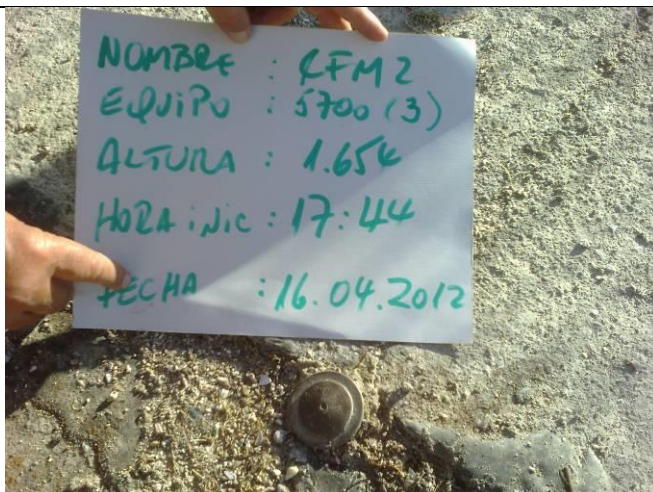 NOMBRE : RFM2
EQUIPO : 5700 (3)
ALTURA : 1.654
HORA iNic : 17:44
FECHA : 16.04.2012